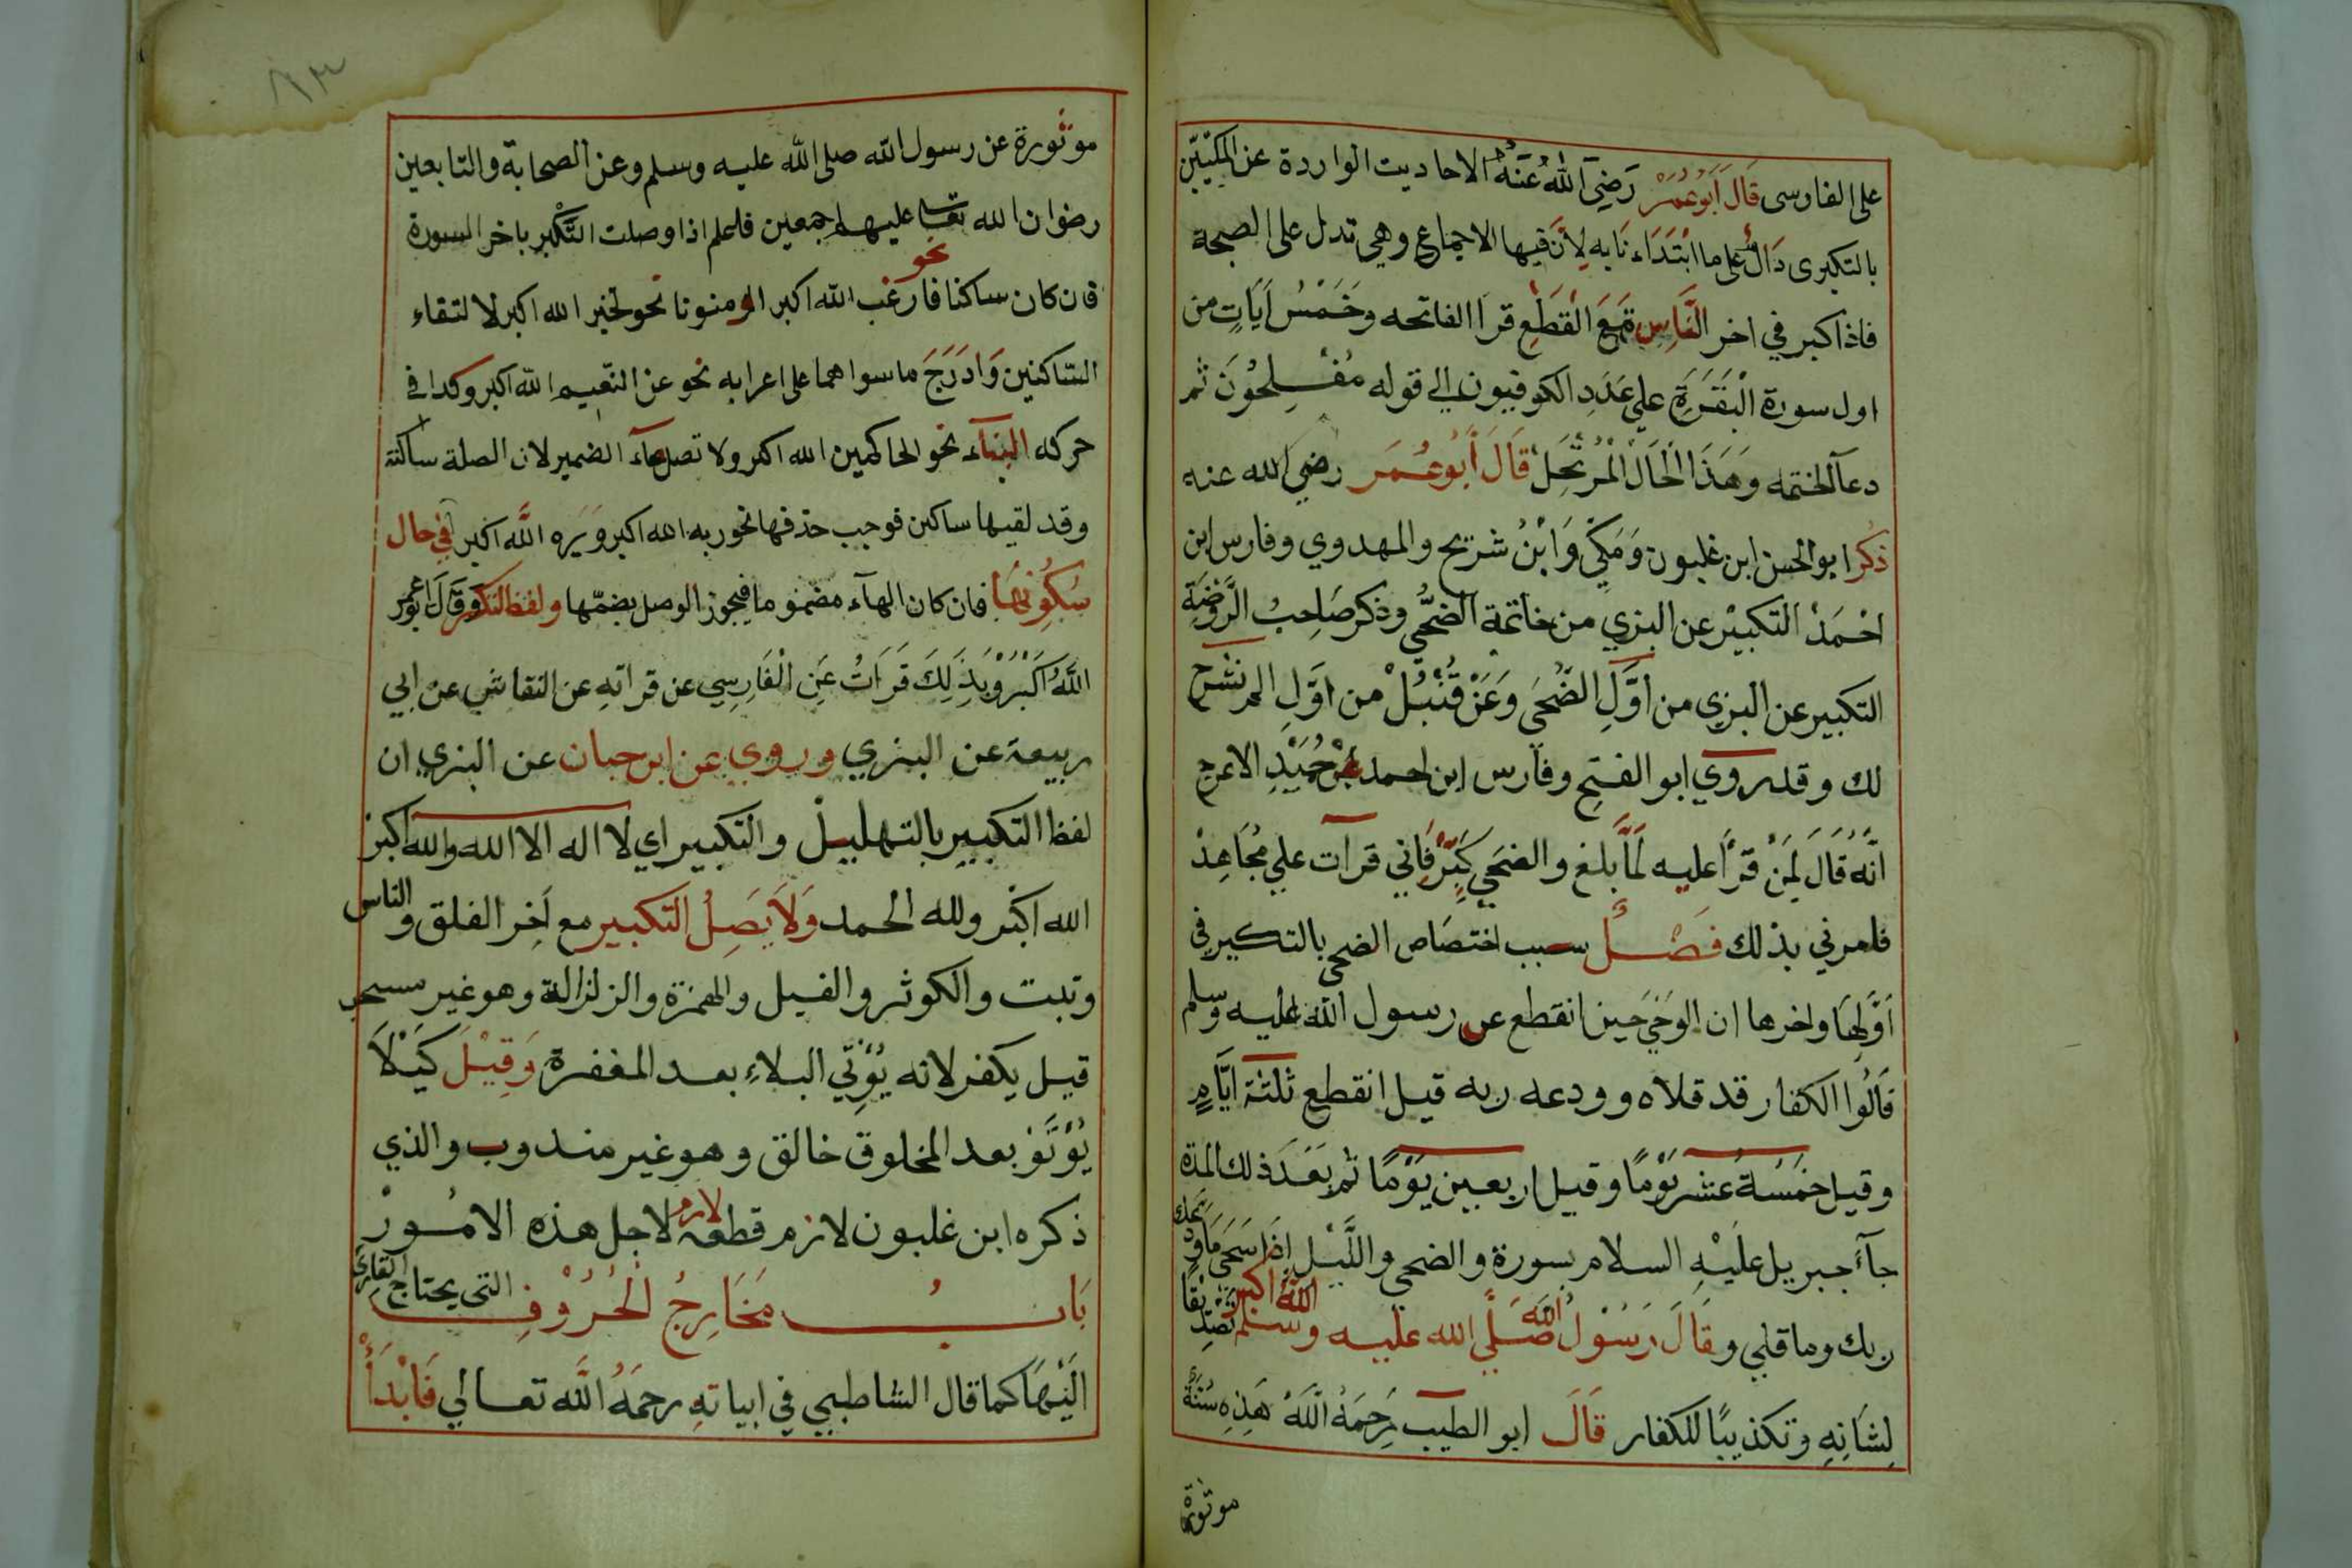 على الفارسى قَالَ أَبُو عُمَرْ رَضِيَ اللّٰهُ عَنْهُ الاحاديت الواردة عن المكيّين
بالتكبرى دَالٌ على ما ابْتَدَاء نَا به لِاَنَّ فيها الاجماع وهي تدل على الصحة
فاذا كبر في اخر النَّاسِ مَعَ الْقَطْعِ قرا الفاتحه وخَمْسُ اَيَاتٍ من
اول سورة الْبَقَرَةِ على عَدَدِ الكوفيون الي قوله مُفْلِحُونَ ثم
دعا الختمه وَهَذَا الْحَالْ الْمُرْتَحِلْ قَالَ أَبُو عُمَر رضي الله عنه
ذكر ابو الحسن ابن غلبون وَمَكِّي وَابْنُ شريح والمهدوي وفارس ابن
احْمَدْ التكبيْر عن البزي من خاتمة الضُّحَي وذكر صَاحِبُ الرَّوْضَة
التكبير عن البزي من اَوَّلِ الضُّحَى وَعَنْ قُنْبُلْ من اوَّلِ الم نشرح
لك وقد روي ابو الفتح وفارس ابن احمد عن حُمَيْدِ الاعرج
انَّهُ قَالَ لِمَنْ قَرَأَ عليه لَمَّا بلغ والضحَي كَبِّرْ فَاِني قرات علي مُجَاهِدْ
فامرني بذلك فَصْلٌ سبب اختصَاص الضحى بالتكبير في
اَوَّلِهَا واخرها ان الوَحْيَ حين انقطع عن رسول الله عليه وسلم
قَالُوا الكفار قد قلاه وودعه ربه قيل انقطع ثلثة ايَّامٍ
وقيل خَمْسَةُ عشر يَوْمًا وقيل اربعين يَوْمًا ثم بعْدَ ذلك المدة
جآءَ جبريل عليْهِ السلام بسورة والضحي واللَّيْل اِذَا سَجَى مَا وَدَّعَكَ
ربك وما قلي وقَالَ رَسُوْلُ اللّٰه صَلَّي الله عليه وسلم الله اكبر تصْدِيْقًا
لِشَانِهِ وتكذيبًا للكفار قَالَ ابو الطيب رَحِمَهُ اللَّهُ هَذِهِ سُنَّةٌ
موثورة
٨٣
موثورة عن رسول الله صلى الله عليه وسلم وعن الصحابة والتابعين
رضوان الله تعا عليهم اجمعين فاعلم اذا وصلت التَّكْبر باخر السورة
فان كان ساكنا نحو فارغب الله اكبر او منونا نحو لخبير الله اكبر لالتقاء
السَّاكنين وَادْرَجَ ما سواهما على اعرابه نحو عن النّعيم الله اكبر وكدا في
حركه البنآء نحو الحاكمين الله اكبر ولا تصل هآء الضمير لان الصلة ساكنة
وقد لقيها ساكن فوجب حذفها نحو ربه الله اكبر وَيَره اللَّه اكبر في حال
سُكُونِهَا فان كان الهآء مضمومًا فيجوز الوصل بضمّها ولفظ التكبر وَقَالَ ابو عمر
اللَّهُ اَكْبَرْ وَبِذَلِكَ قَرَاتُ عَنِ الْفَارِسِي عن قراتهِ عن النقاش عن ابي
ربيعة عن البزي وروي عن ابن حبان عن البزي ان
لفظ التكبيرِ بالتهليلْ والتكبير اي لا اله الا الله والله اكبر
الله اكبر ولله الحمد وَلَا يَصِلُ التكبير مع آخر الفلق والناس
وتبت والكوثر والفيل والهمزة والزلزالة وهو غير مستحب
قيل يكفر لانه يُؤتّي البلاءِ بعد المغفرة وَقِيْلَ كَيْلَا
يُؤتَوْ بعد المخلوق خالق وهو غير مندوب والذي
ذكره ابن غلبون لازم قطعه لازم لاجل هذه الامُورْ
بَابُ مَخَارِجُ الْحُرُوْفِ التى يحتاج القارئ
الَيْهَا كما قال الشاطبي في ابياتهِ رحمَهُ اللَّه تعالي فَابْدَأْ